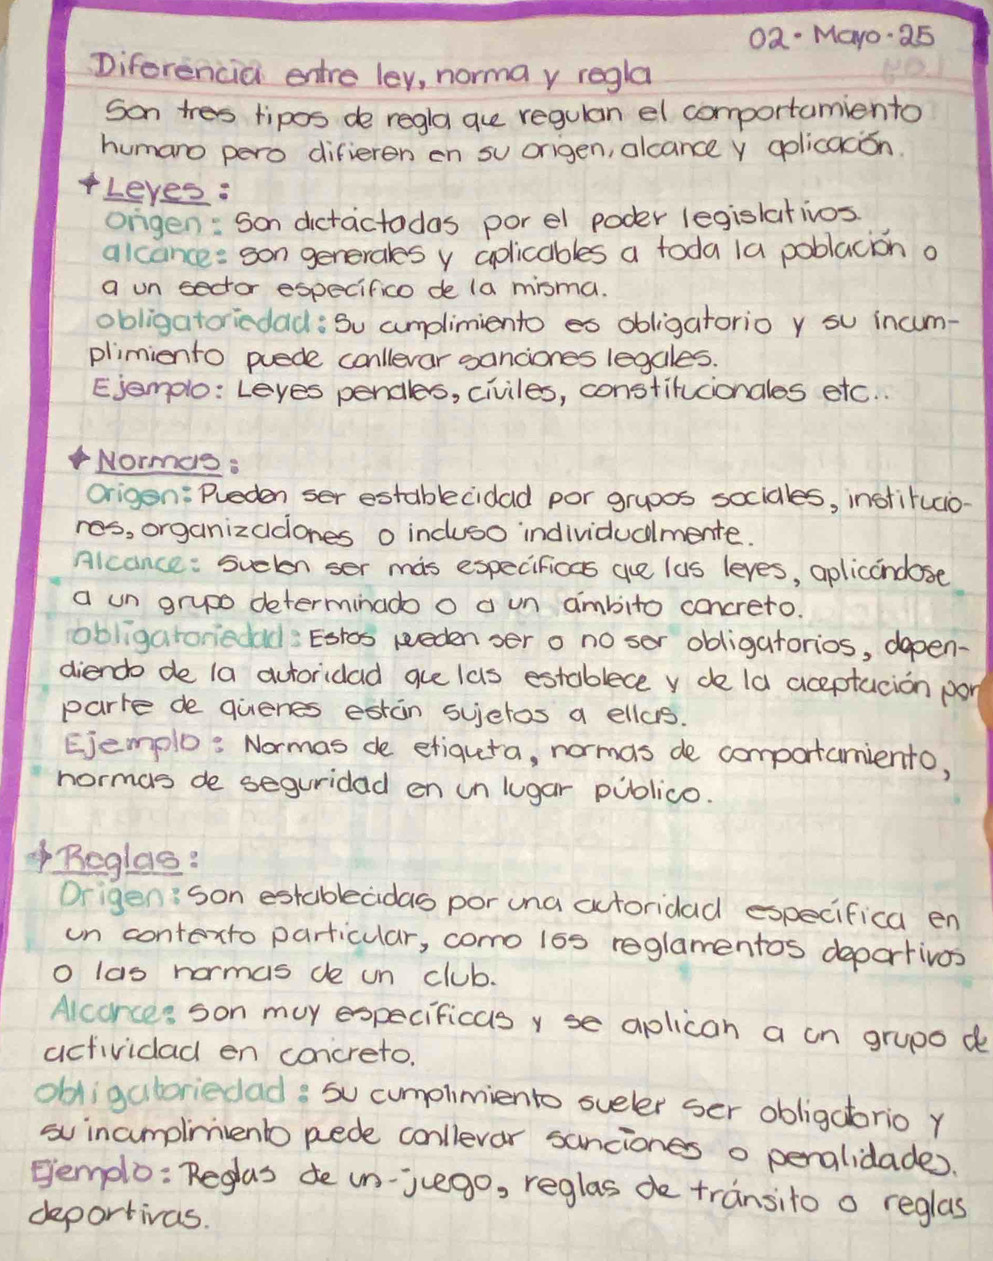 02 · Mayo · 25
Diferencia entre ley, norma y regla
Son tres tipos de regla que regulan el comportamiento
humano pero difieren en su origen, alcance y aplicación.
Leyes:
Origen: Son dictáctadas por el poder legislativos.
alcance: son generales y aplicables a toda la población o
a un sector específico de la misma.
obligatoriedad: Su cumplimiento es obligatorio y su incum-
plimiento puede conllevar sanciones legales.
Ejemplo: Leyes penales, cíviles, constitucionales etc..
Normas:
Origen: Pueden ser establecidad por grupos sociales, institucio-
nes, organizaciones o incluso individualmente.
Alcance: Suelen ser más específicas que las leyes, aplicándose
a un grupo determinado o a un ámbito concreto.
obligatoriedad: Estas pueden ser o no ser obligatorios, depen-
diendo de la autoridad que las establece y de la aceptación por
parte de quienes están sujetos a ellas.
Ejemplo: Normas de etiqueta, normas de comportamiento,
normas de seguridad en un lugar público.
Reglas:
Origen: Son establecidas por una autoridad específica en
un contexto particular, como los reglamentos deportivos
o las normas de un club.
Alcance: son muy específicas y se aplican a un grupo de
actividad en concreto.
obligatoriedad: su cumplimiento sueler ser obligatorio y
su incumplimiento puede conllevar sanciones o penalidades.
Ejemplo: Reglas de un juego, reglas de tránsito o reglas
deportivas.